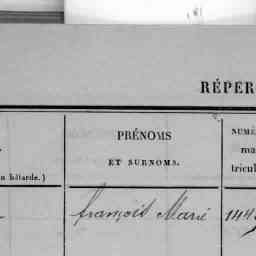 RÉPER
PRÉNOMS
ET SURNOMS.
NUMÉ
ma
tricul
n bâtarde.)
françois Marie 144